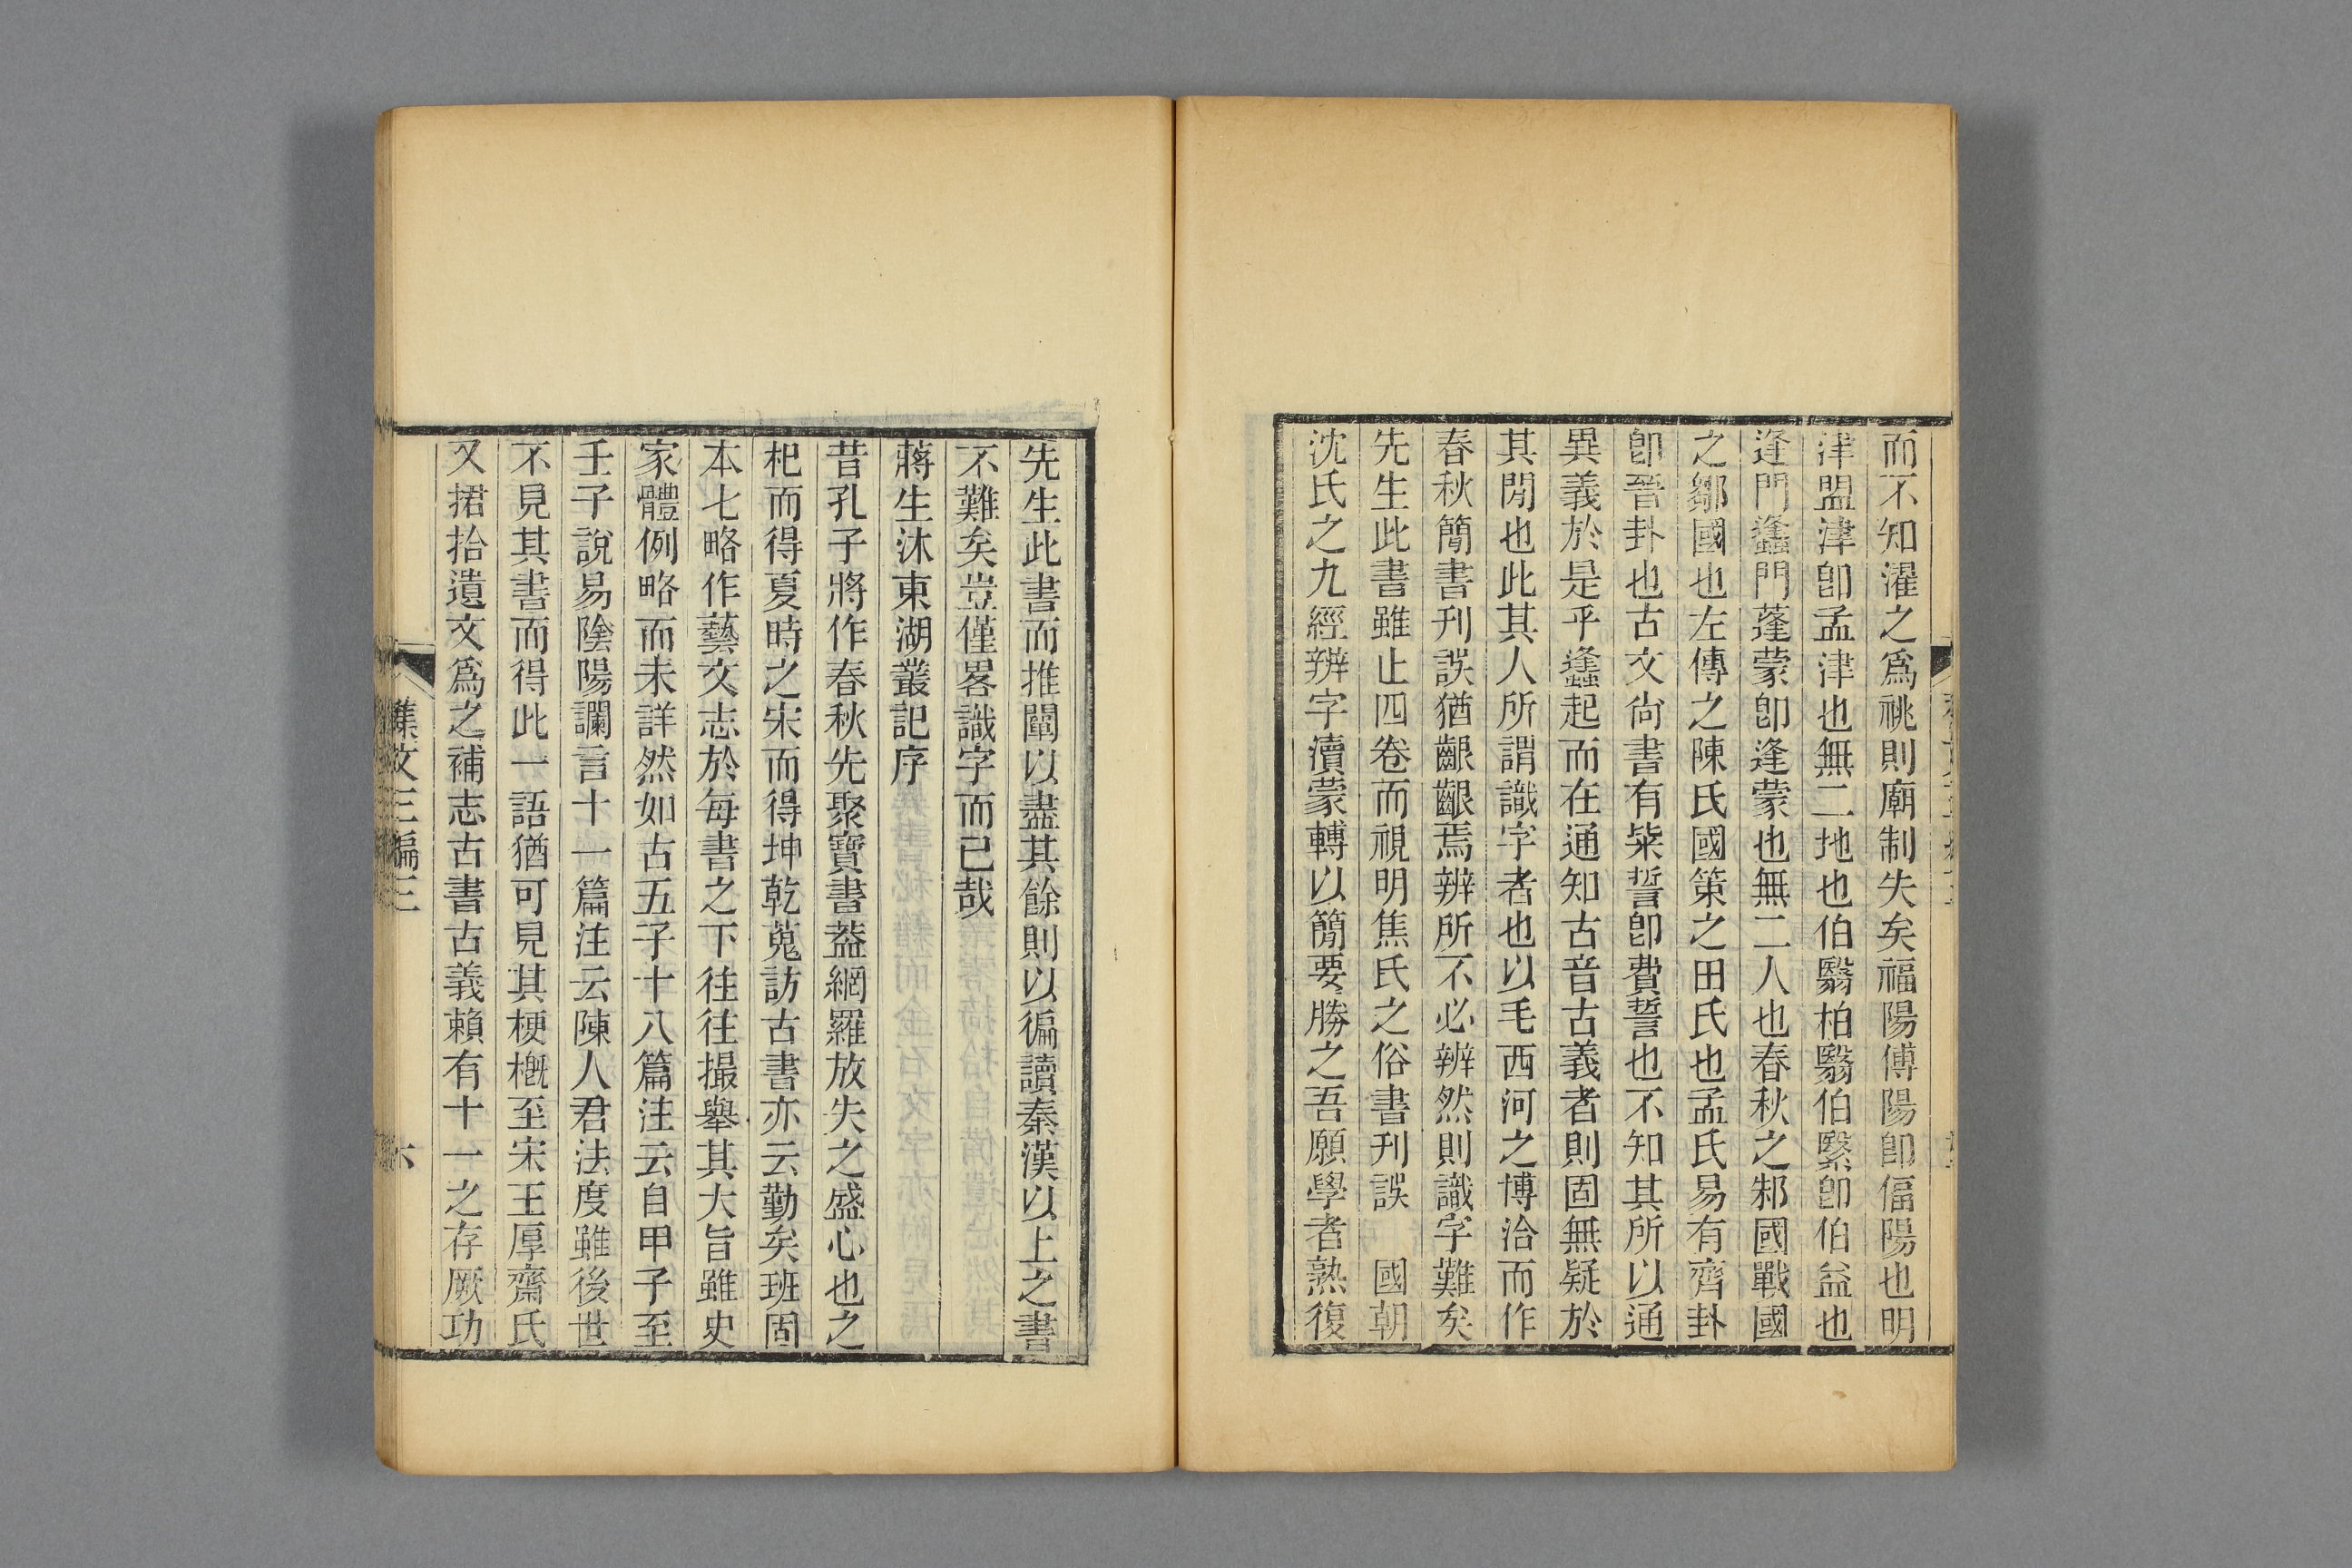 而不知濯之爲祧則廟制失矣福陽傅陽卽偪陽也明
津盟津卽孟津也無二地也伯翳柏翳伯繄卽伯益也
逢門蠭門蓬蒙卽逢蒙也無二人也春秋之邾國戰國
之鄒國也左傳之陳氏國策之田氏也孟氏易有齊卦
卽晉卦也古文尙書有粊誓卽費誓也不知其所以通
異義於是乎蠭起而在通知古音古義者則固無疑於
其閒也此其人所謂識字者也以毛西河之博洽而作
春秋簡書刊誤猶齦齦焉辨所不必辨然則識字難矣
先生此書雖止四卷而視明焦氏之俗書刊誤　國朝
沈氏之九經辨字瀆蒙轉以簡要勝之吾願學者熟復
先生此書而推闡以盡其餘則以徧讀秦漢以上之書
不難矣豈僅畧識字而已哉
蔣生沐東湖叢記序
昔孔子將作春秋先聚寶書葢網羅放失之盛心也之
杞而得夏時之宋而得坤乾蒐訪古書亦云勤矣班固
本七略作藝文志於每書之下往往撮舉其大旨雖史
家體例略而未詳然如古五子十八篇注云自甲子至
壬子說易陰陽讕言十一篇注云陳人君法度雖後世
不見其書而得此一語猶可見其梗槪至宋王厚齋氏
又捃拾遺文爲之補志古書古義賴有十一之存厥功
集文三編三
六